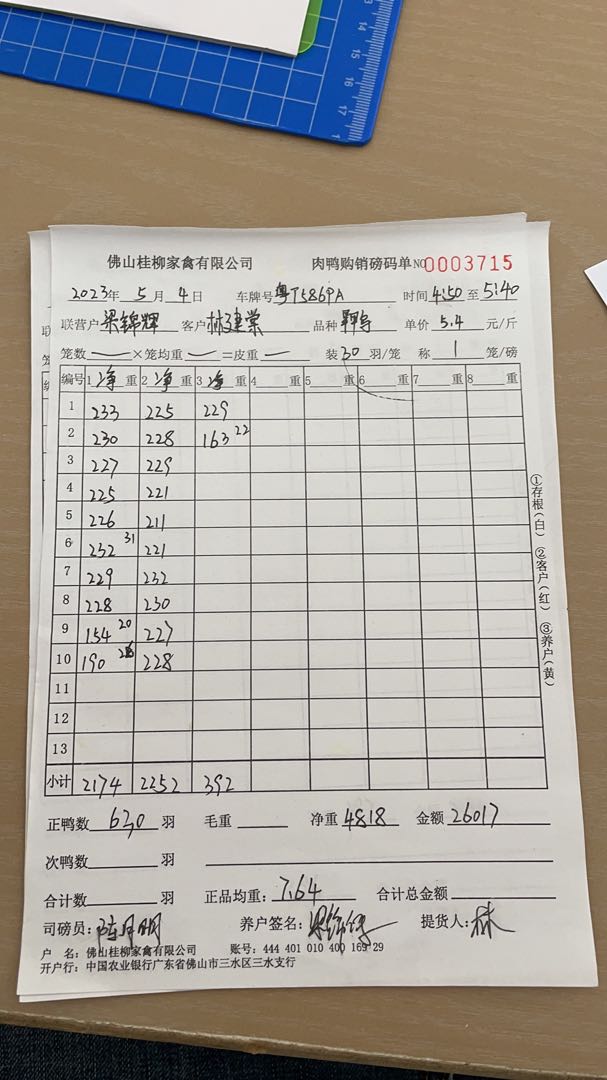 13 14 15 16 17
佛山桂柳家禽有限公司 肉鸭购销磅码单 NO 0003715
2023年 5 月 4 日 车牌号 粤T5869A 时间 4:50 至 5:40
联营户 梁锦辉 客户 林建棠 品种 单价 5.4 元/斤
笼数 — ×笼均重 — =皮重 — 装 30 羽/笼 称 1 笼/磅
编号 1 净 重 2 净 重 3 净 重 4 重 5 重 6 重 7 重 8 重
1 233 225 229
2 230 228 163 22
3 227 229
4 225 221
5 226 211
6 232 31 221
7 229 232
8 228 230
9 154 20 227
10 190 228
11
12
13
小计 2174 2252 392
①存根(白) ②客户(红) ③养户(黄)
正鸭数 630 羽 毛重 净重 4818 金额 26017
次鸭数 羽
合计数 羽 正品均重: 7.64 合计总金额
司磅员: 陈月明 养户签名: 提货人: 林
户 名: 佛山桂柳家禽有限公司 账号: 444 401 010 400 169 29
开户行: 中国农业银行广东省佛山市三水区三水支行